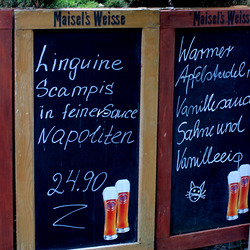 Maisel's Weisse
Linguine
Scampis
in feiner Sauce
Napoliten
24.90
Maisel's Weisse
Warmer
Apfelstrudel
Vanillesauc
Sahne und
Vanilleeis